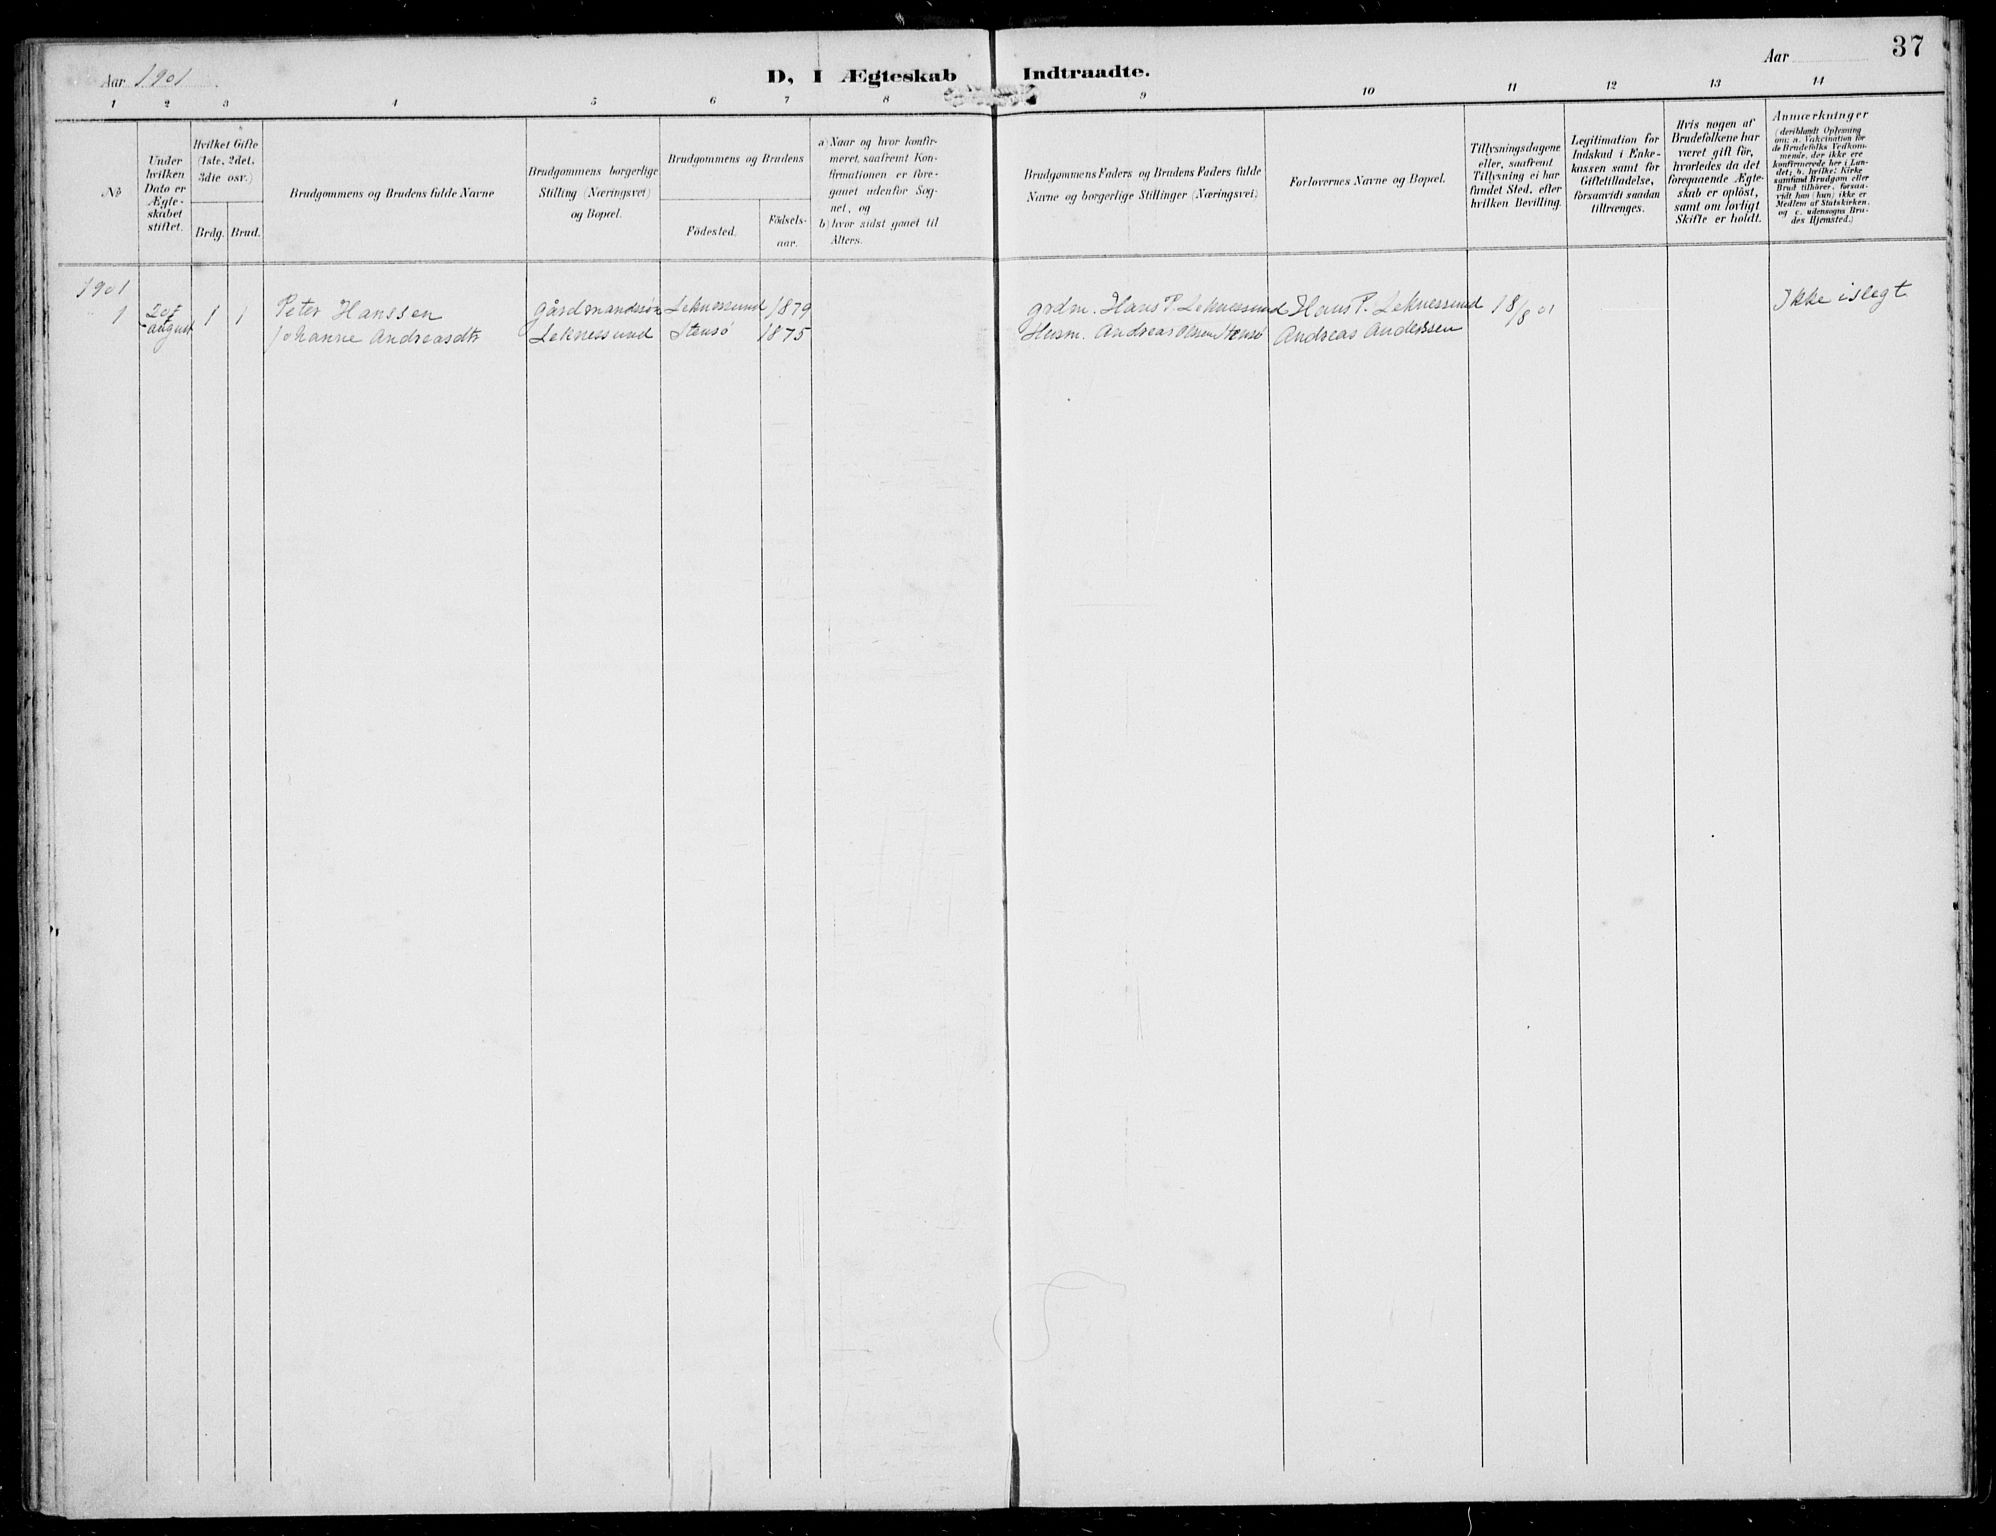 Aar 1901
D, I Ægteskab Indtraadte.
Aar
37
1 2 3 4 5 6 7 8 9 10 11 12 13 14
No
Under
hvilken
Dato er
Ægte-
skabet
stiftet.
Hvilket Gifte
(1ste, 2det,
3die osv.)
Brdg. Brud.
Brudgommens og Brudens fulde Navne
Brudgommens borgerlige
Stilling (Næringsvei)
og Bopæl.
Brudgommens og Brudens
Födested.
Födsels-
aar.
a) Naar og hvor konfir-
meret, saafremt Kon-
firmationen er fore-
gaaet udenfor Sog-
net, og
b) hvor sidst gaaet til
Alters.
Brudgommens Faders og Brudens Faders fulde
Navne og borgerlige Stillinger (Næringsvei)
Forlovernes Navne og Bopæl.
Tillysningsdagene
eller, saafremt
Tillysning ei har
fundet Sted, efter
hvilken Bevilling.
Legitimation for
Indskud i Enke-
kassen samt for
Giftetilladelse,
forsaavidt saadan
tiltrænges.
Hvis nogen af
Brudefolkene har
været gift för,
hvorledes da det
foregaaende Ægte-
skab er oplöst,
samt om lovligt
Skifte er holdt.
Anmærkninger
(deriblandt Oplysning
om: a. Vakcination for
de Brudefolks Vedkom-
mende, der ikke ere
konfirmerede her i Lan-
det; b. hvilke Kirke
samfund Brudgom eller
Brud tilhörer, forsaa-
vidt han (hun) ikke er
Medlem af Statskirken.
og c. udensogns Bru-
des Hjemsted.)
1901
1 20de 1 1 Peter Hanssen gårdmandssön Leknessund 1879 grdm. Hans P. Leknessund Hans P. Leknessund 18/8 01 Ikke islegt
august Johanne Andreasdtr Leknessund Stensö 1875 Husm. Andreas Olsen Stensö Andreas Anderssen